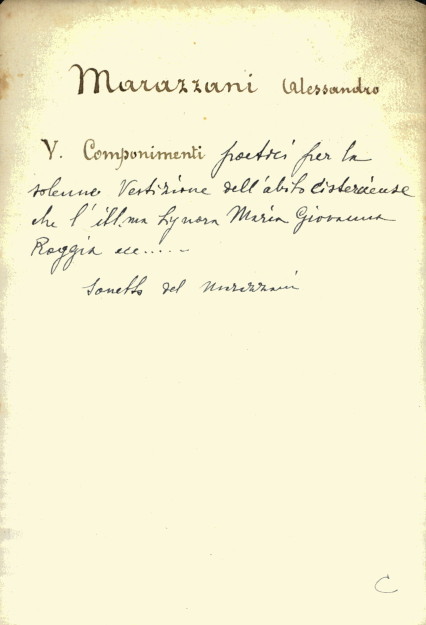 Marazzani Alessandro
V. Componimenti poetici per la
solenne Vestizione dell'abito cisterciense
che l'ill.ma Signora Maria Giovanna
Roggia ecc.....
Sonetto del Marazzani
C